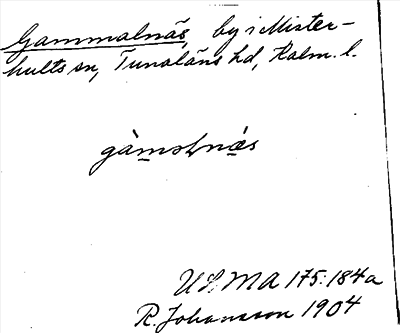 Gammalnäs, by i Mister-
hults sn, Tunaläns hd, Kalm. l.
gàmalnæs
ULMA 175:184a
R. Johansson 1904